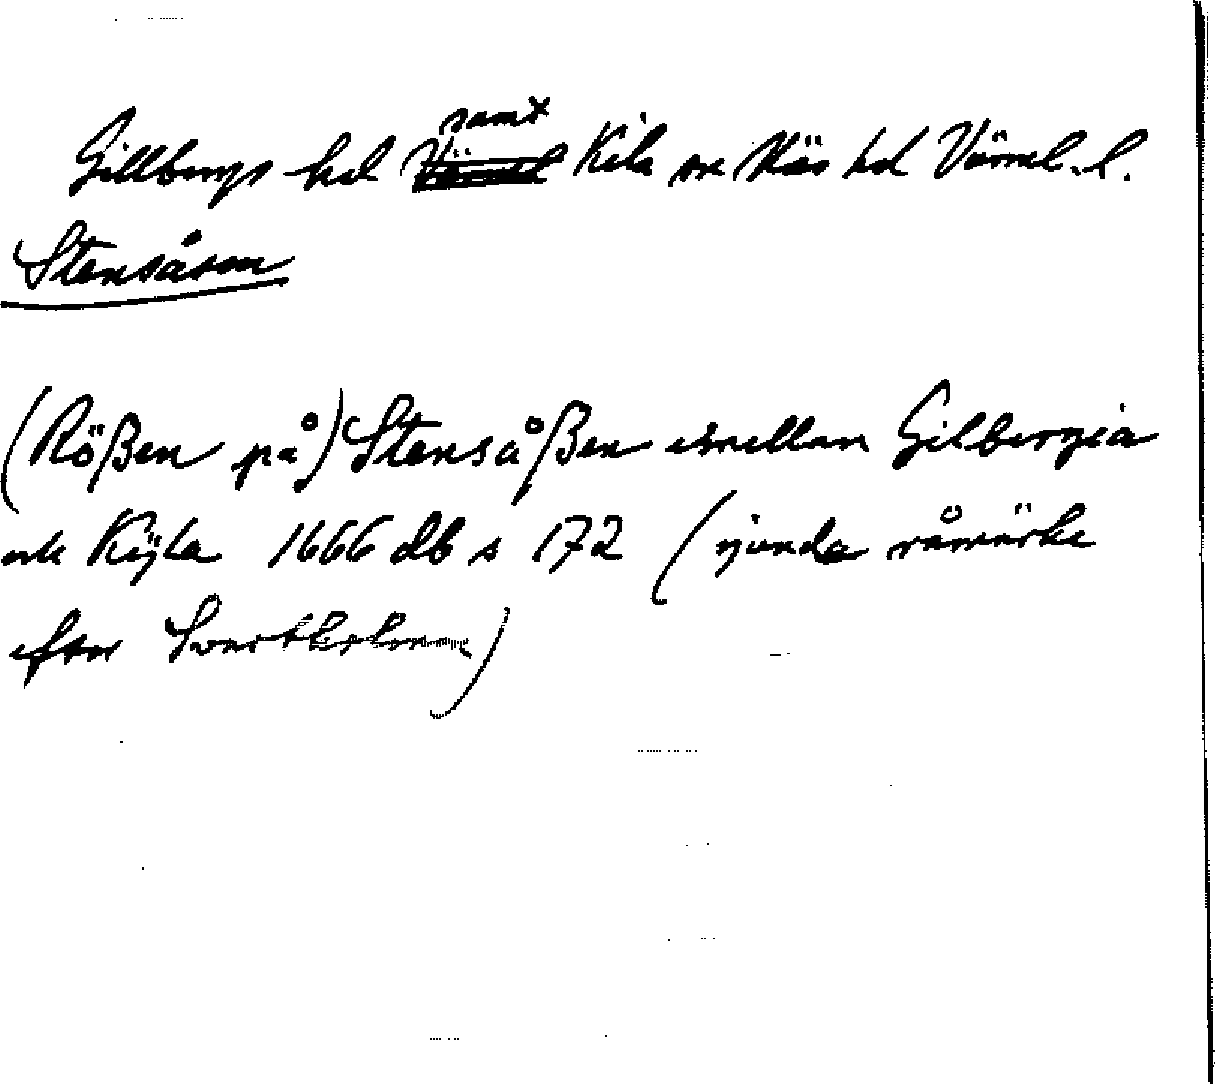 Gillbergs hd samt Kila sn Näs hd Värml. l.
Stensåsen
(Rößen på) Stensåßen emellan Gilbergia
och Kijla 1666 db s 172 (siunda råmärke
efter Svertholmen)